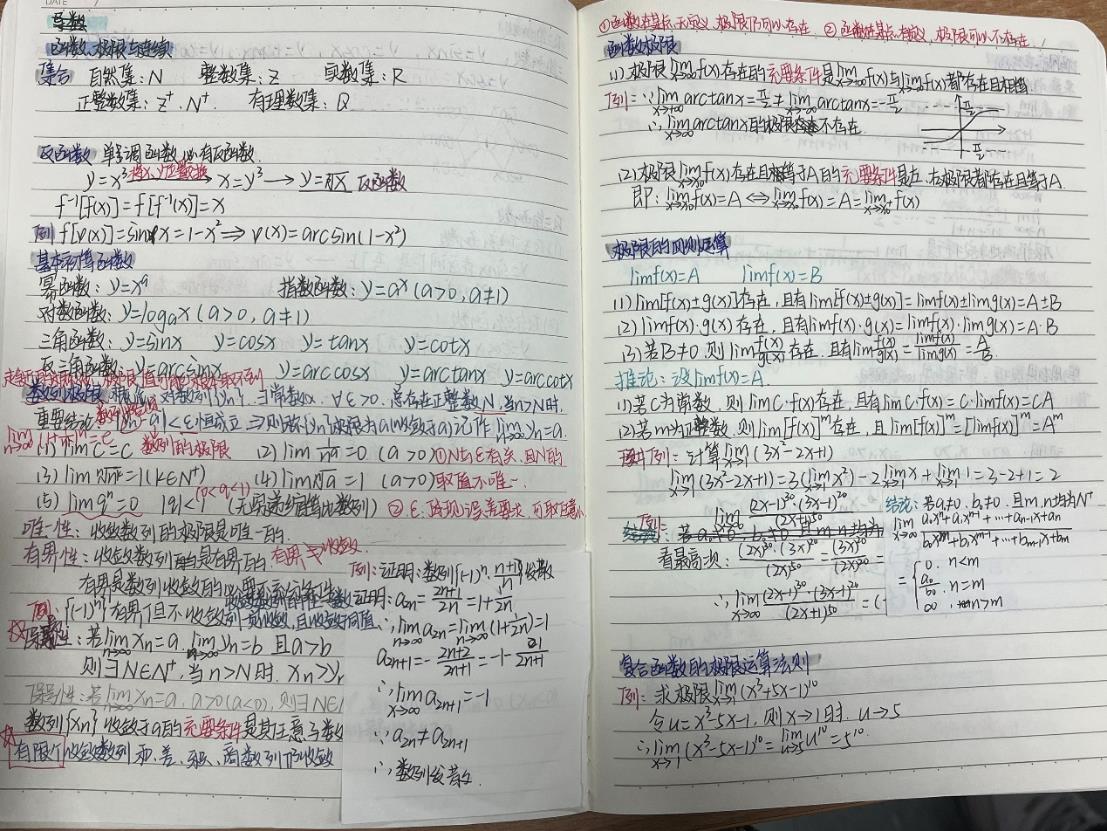 导数
函数、极限与连续
集合 自然集：N 整数集：Z 实数集：R
正整数集：Z⁺、N⁺ 有理数集：Q
反函数 单调函数必有反函数.
y=x³ → x=y³ → y=∛x 反函数
f⁻¹[f(x)]=f[f⁻¹(x)]=x
例 f[φ(x)]=sinφx=1-x² ⇒ φ(x)=arcsin(1-x²)
基本初等函数
幂函数：y=xᵃ 指数函数：y=aˣ (a>0, a≠1)
对数函数：y=logₐx (a>0, a≠1)
三角函数：y=sinx y=cosx y=tanx y=cotx
反三角函数：y=arcsinx y=arccosx y=arctanx y=arccotx
数列极限 对数列{yn}, ∃常数a, ∀ε>0, 总存在正整数N, 当n>N时,
|yn-a|<ε恒成立 ⇒ 则称{yn}极限为a(收敛于a)记作 lim n→∞ yn=a.
重要结论：数列极限
(1) lim C=C 数列的极限 (2) lim 1/nᵃ=0 (a>0) ①N与ε有关, 且N的
(3) lim ⁿ√nᵏ=1 (k∈N⁺) (4) lim ⁿ√a=1 (a>0) 取值不唯一.
(5) lim qⁿ=0 |q|<1 (0<q<1) (无穷递缩等比数列) ②ε
唯一性：收敛数列的极限是唯一的.
有界性：收敛数列是有界的 有界⇏收敛
有界是数列收敛的必要
例：{(-1)ⁿ}有界但不收敛
若lim n→∞ xn=a, lim n→∞ yn=b 且a>b
则∃N∈N⁺, 当n>N时, xn>y
保号性：若lim n→∞ xn=a, a>0(a<0), 则∃N∈
数列{xn}收敛于a的充要条件是其任意子数
有限个收敛数列和、差、积、商数列仍收敛
例：证明：数列{(-1)ⁿ·(n+1)/n}发散
证明：a2n=(2n+1)/2n=1+1/2n
∴lim n→∞ a2n=lim n→∞(1+1/2n)=1
a2n+1=-(2n+2)/(2n+1)=-1-1/(2n+1)
∴lim x→∞ a2n+1=-1
∵a2n≠a2n+1
∴数列发散.
①函数在某点无定义, 极限仍可以存在 ②函数在某点有定义, 极限可以不存在.
函数极限
(1)极限lim x→∞ f(x)存在的充要条件是lim x→+∞ f(x)与lim x→-∞ f(x)都存在且相等
例：∵lim x→+∞ arctanx=π/2≠lim x→-∞ arctanx=-π/2
∴lim x→∞ arctanx的极限不存在
π/2
-π/2
(2)极限lim x→x₀ f(x)存在且相等于A的充要条件是左、右极限都存在且等于A.
即：lim x→x₀ f(x)=A ⇔ lim x→x₀⁻ f(x)=A=lim x→x₀⁺ f(x)
极限的四则运算
limf(x)=A limf(x)=B
(1) lim[f(x)±g(x)]存在, 且有lim[f(x)±g(x)]=limf(x)±limg(x)=A±B
(2) limf(x)·g(x)存在, 且有limf(x)·g(x)=limf(x)·limg(x)=A·B
(3)若B≠0, 则lim f(x)/g(x)存在, 且有lim f(x)/g(x)=limf(x)/limg(x)=A/B
推论：设limf(x)=A.
(1)若C为常数, 则limC·f(x)存在, 且有limC·f(x)=C·limf(x)=CA
(2)若m为正整数, 则lim[f(x)]ᵐ存在, 且lim[f(x)]ᵐ=[limf(x)]ᵐ=Aᵐ
例：计算lim x→1 (3x²-2x+1)
lim x→1 (3x²-2x+1)=3(lim x→1 x²)-2lim x→1 x+lim x→1 1=3-2+1=2
例：lim x→∞ (2x-1)³⁰·(3x-1)²⁰/(2x+1)⁵⁰
看最高次：(2x)³⁰·(3x)²⁰/(2x)⁵⁰=(3x)²⁰/(2x)²⁰
∴lim x→∞ (2x-1)³⁰·(3x-1)²⁰/(2x+1)⁵⁰=(
结论：若a₀≠0, b₀≠0, 且m,n均为N⁺
lim x→∞ (a₀xⁿ+a₁xⁿ⁻¹+…+an-1x+an)/(b₀xᵐ+b₁xᵐ⁻¹+…+bm-1x+bm)
={0, n<m
a₀/b₀, n=m
∞, n>m
复合函数的极限运算法则
例：求极限lim x→1 (x²+5x-1)¹⁰
令u=x²-5x-1, 则x→1时, u→5
∴lim x→1 (x²-5x-1)¹⁰=lim u→5 u¹⁰=5¹⁰.